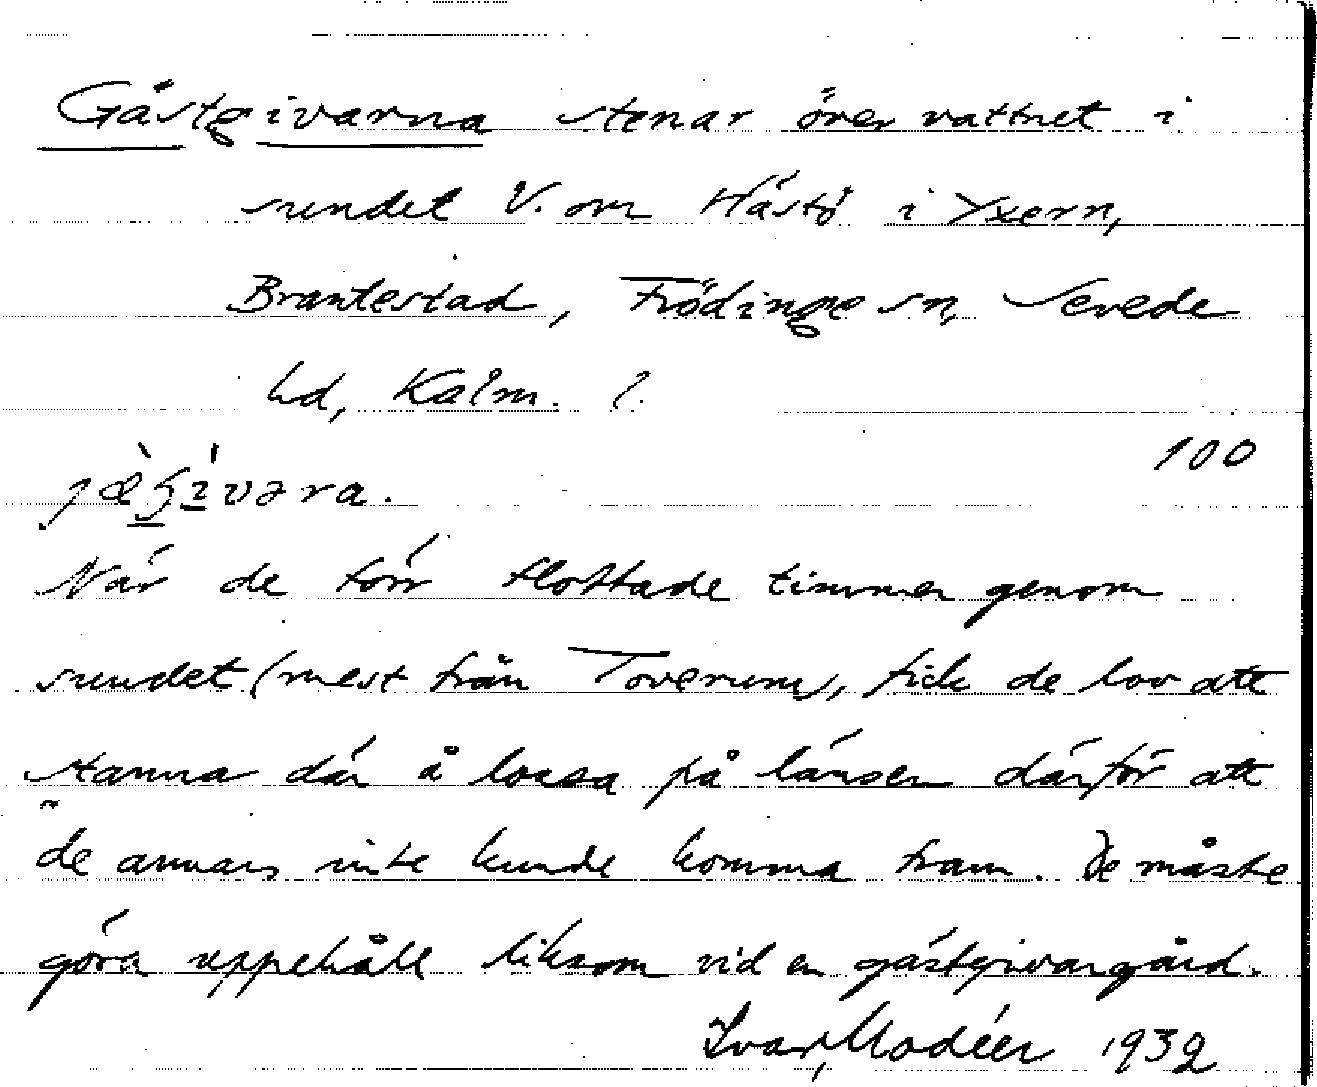 Gästgivarna stenar över vattnet i
sundet V. om Hästö i Yxern,
Brantestad, Frödinge sn, Sevede
hd, Kalm. l.
100
När de förr flottade timmer genom
sundet (mest från Toverum), fick de lov att
stanna där å lossa på länsen därför att
de annars inte kunde komma fram. De måste
göra uppehåll liksom vid en gästgivargård.
Ivar Modéer 1932